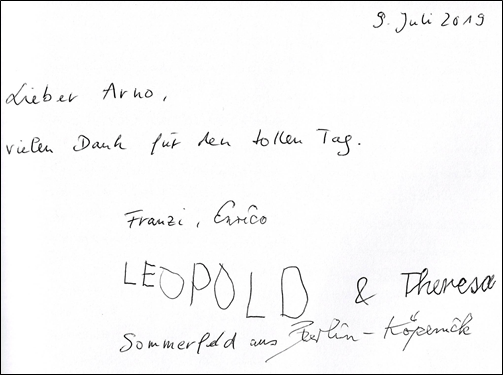 9. Juli 2019
Lieber Arno,
vielen Dank für den tollen Tag.
Franzi, Enrico
LEOPOLD & Theresa
Sommerfeld aus Berlin-Köpenick